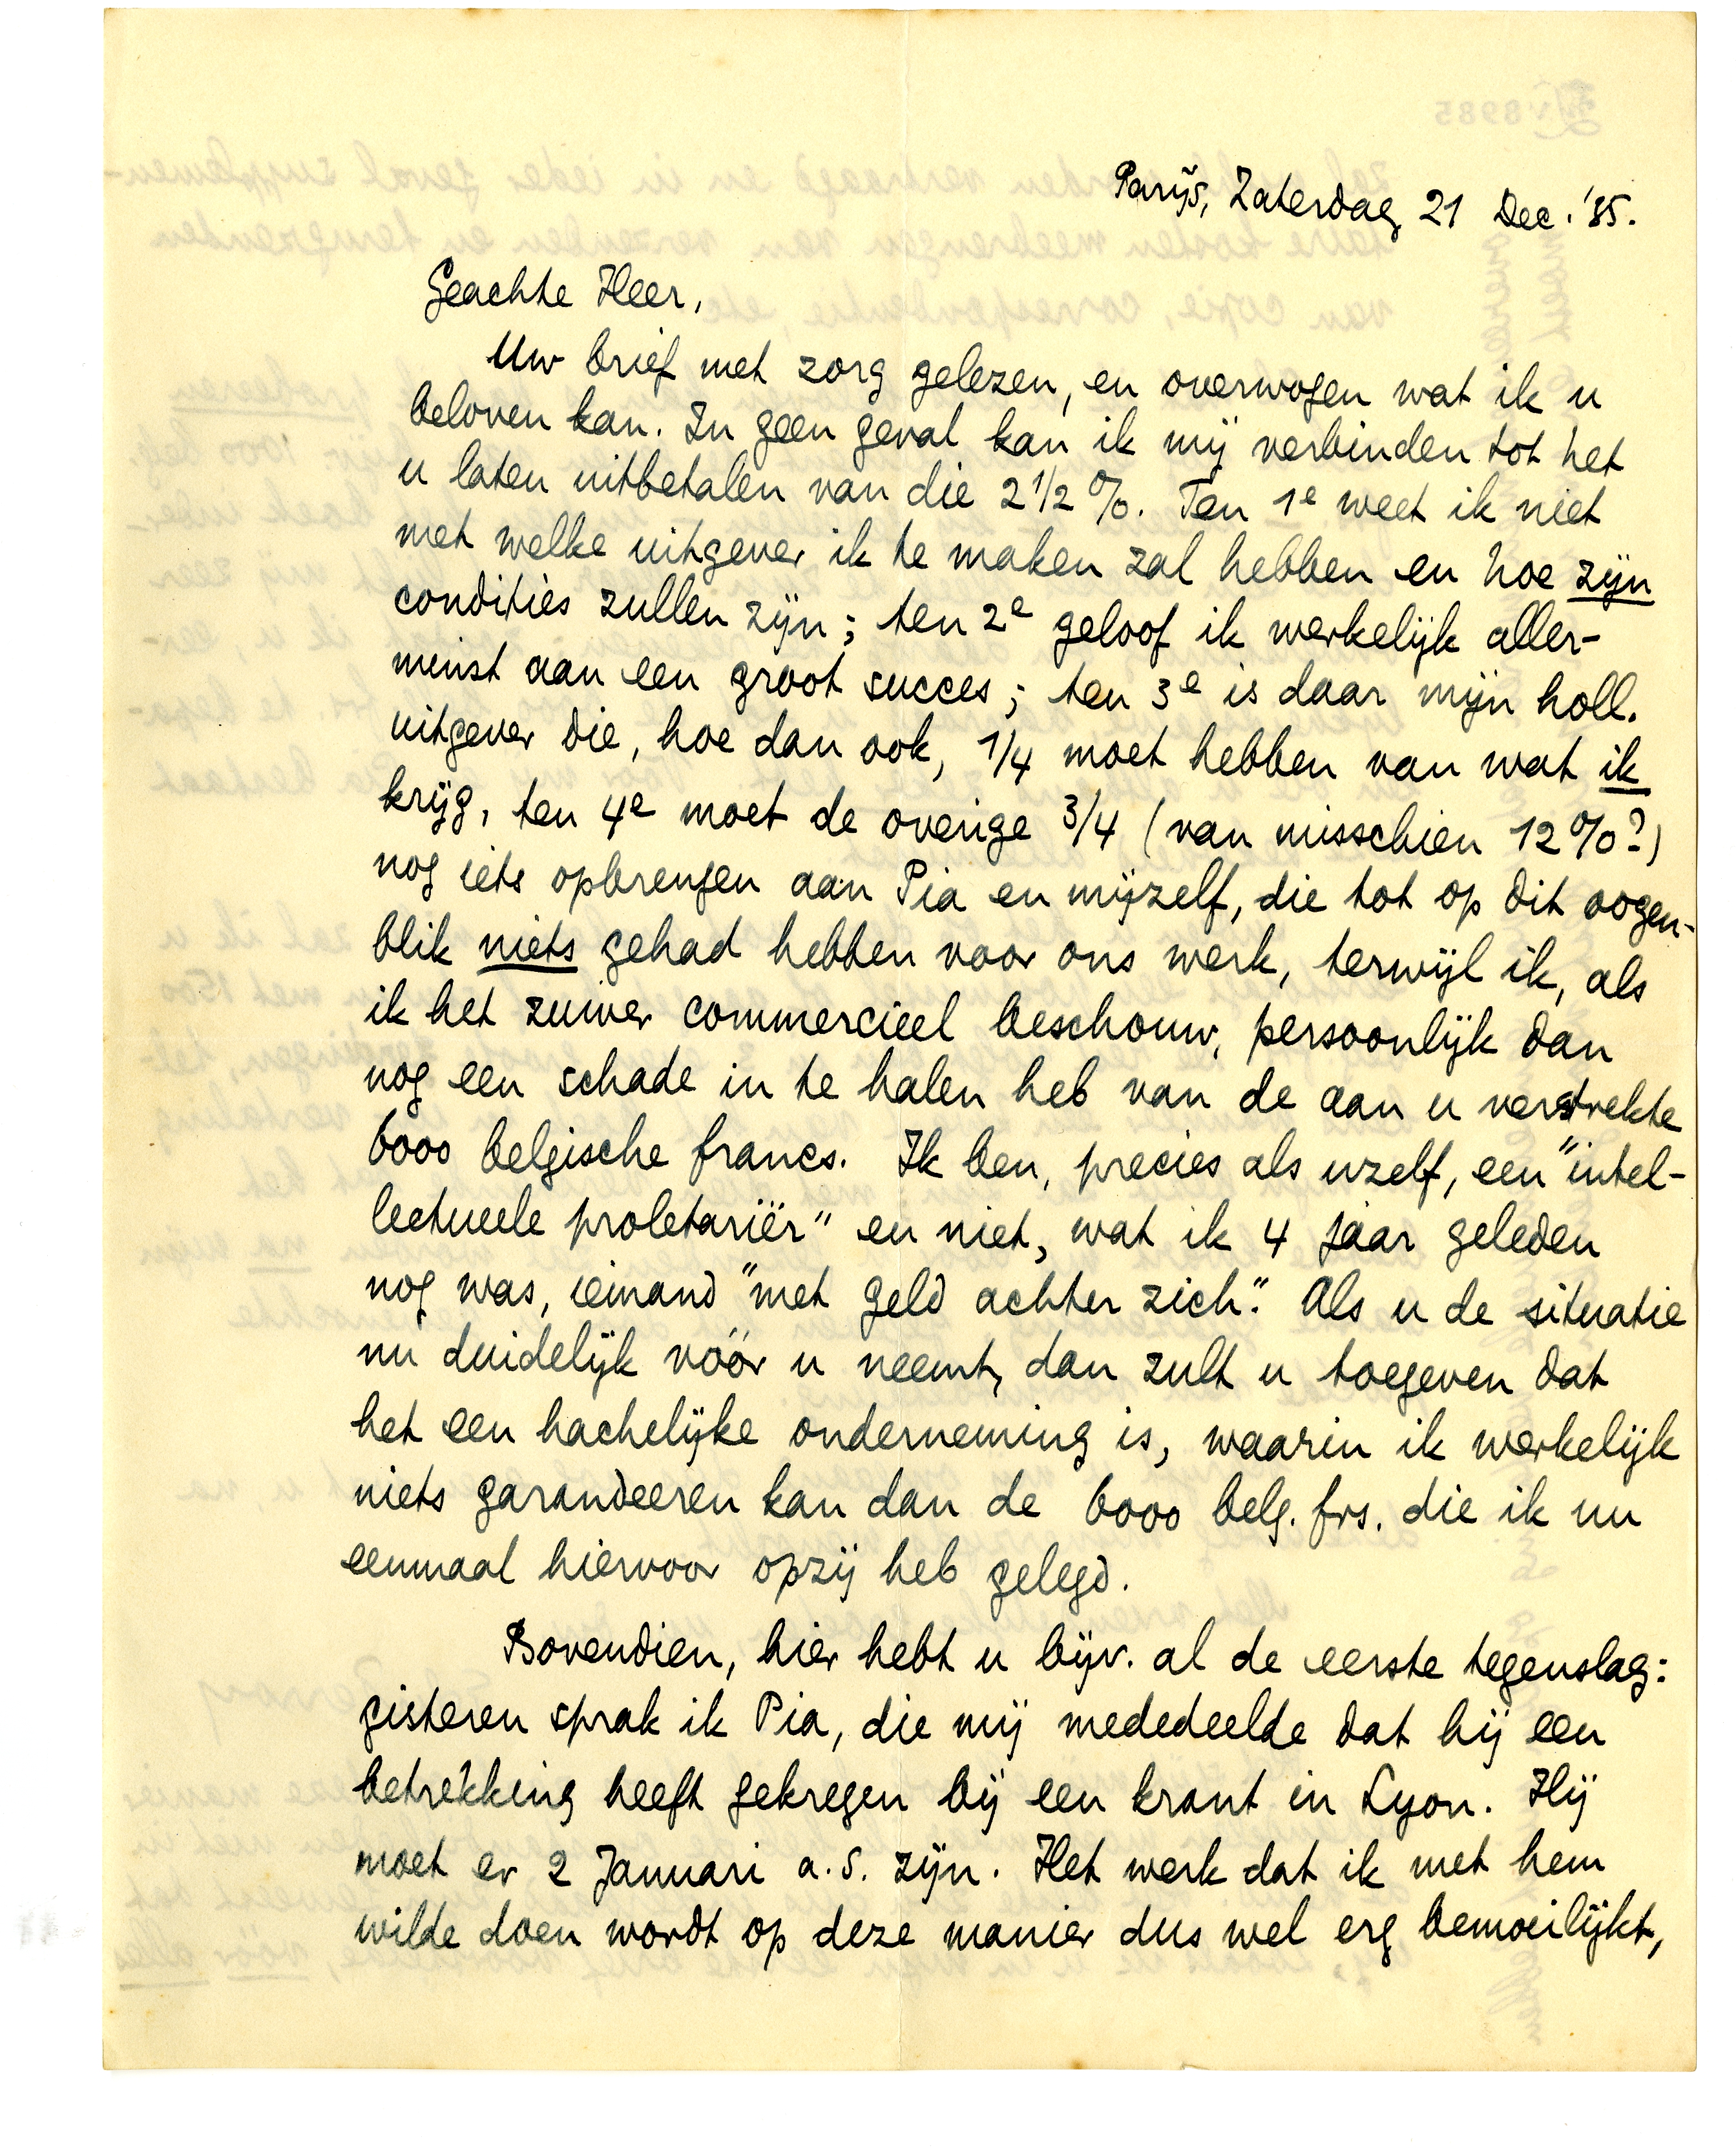 Parijs, Zaterdag 21 Dec. '35.
Geachte Heer,
Uw brief met zorg gelezen, en overwogen wat ik u
beloven kan. In geen geval kan ik mij verbinden tot het
u laten uitbetalen van die 2 1/2 %. Ten 1e weet ik niet
met welke uitgever ik te maken zal hebben en hoe zijn
condities zullen zijn; ten 2e geloof ik werkelijk aller-
minst aan een groot succes; ten 3e is daar mijn holl.
uitgever die, hoe dan ook, 1/4 moet hebben van wat ik
krijg, ten 4e moet de overige 3/4 (van misschien 12%?)
nog iets opbrengen aan Pia en mijzelf, die tot op dit oogen-
blik niets gehad hebben voor ons werk, terwijl ik, als
ik het zuiver commercieel beschouw, persoonlijk dan
nog een schade in te halen heb van de aan u verstrekte
6000 belgische francs. Ik ben, precies als uzelf, een "intel-
lectueele proletariër" en niet, wat ik 4 jaar geleden
nog was, iemand "met geld achter zich." Als u de situatie
nu duidelijk vóór u neemt, dan zult u toegeven dat
het een hachelijke onderneming is, waarin ik werkelijk
niets garandeeren kan dan de 6000 belg. frs. die ik nu
eenmaal hiervoor opzij heb gelegd.
Bovendien, hier hebt u bijv. al de eerste tegenslag:
gisteren sprak ik Pia, die mij mededeelde dat hij een
betrekking heeft gekregen bij een krant in Lyon. Hij
moet er 2 Januari a.s. zijn. Het werk dat ik met hem
wilde doen wordt op deze manier dus wel erg bemoeilijkt,